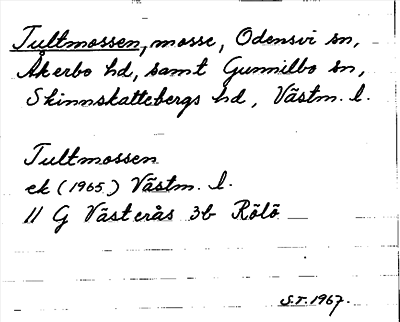 Tultmossen, mosse, Odensvi sn,
Åkerbo hd, samt Gunnilbo sn,
Skinnskattebergs hd, Västm. l.
Tultmossen
ek (1965) Västm. l.
11 G Västerås 3b Rölö
S.T. 1967.